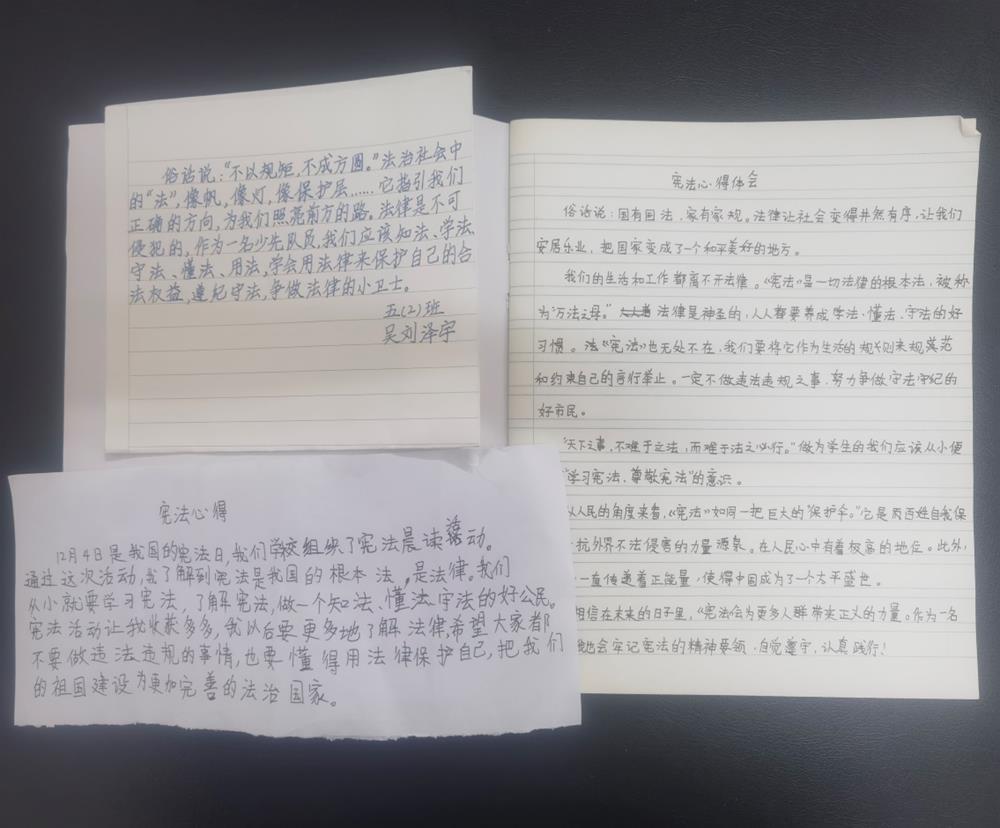 俗话说：“不以规矩，不成方圆。”法治社会中
的“法”，像帆，像灯，像保护层……它指引我们
正确的方向，为我们照亮前方的路。法律是不可
侵犯的，作为一名少先队员，我们应该知法、学法、
守法、懂法、用法，学会用法律来保护自己的合
法权益，遵纪守法，争做法律的小卫士。
五(2)班
吴刘泽宇
宪法心得
12月4日是我国的宪法日，我们学校组织了宪法晨读活动。
通过这次活动，我了解到宪法是我国的根本法，是法律。我们
从小就要学习宪法，了解宪法，做一个知法、懂法、守法的好公民。
宪法活动让我收获多多，我以后要更多地了解法律，希望大家都
不要做违法违规的事情，也要懂得用法律保护自己，把我们
的祖国建设为更加完善的法治国家。
宪法心得体会
俗话说：国有国法，家有家规。法律让社会变得井然有序，让我们
安居乐业，把国家变成了一个和平美好的地方。
我们的生活和工作都离不开法律。《宪法》是一切法律的根本法，被称
为“万法之母。”法律是神圣的，人人都要养成学法、懂法、守法的好
习惯。法《宪法》也无处不在，我们要将它作为生活的规则来规范
和约束自己的言行举止。一定不做违法违规之事，努力争做守法守纪的
好市民。
“天下之事，不难于立法，而难于法之必行。”做为学生的我们应该从小便
“学习宪法，尊敬宪法”的意识。
从人民的角度来看，《宪法》如同一把巨大的“保护伞。”它是自我保
抗外界不法侵害的力量源泉。在人民心中有着极高的地位。此外，
一直传递着正能量，使得中国成为了一个太平盛世。
相信在未来的日子里，《宪法》会为更多人群带来正义的力量。作为一名
地会牢记宪法的精神要领，自觉遵守，认真践行！